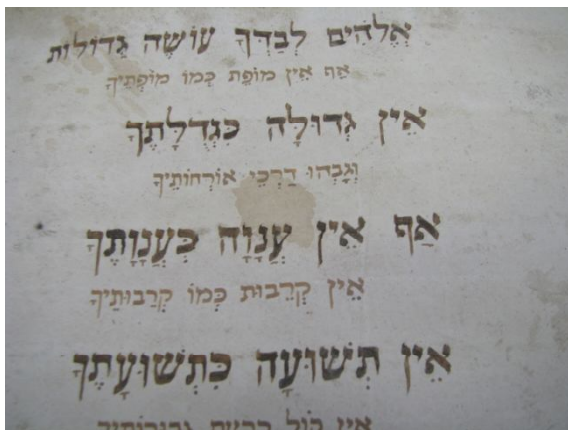 אֱלֹהִים לְבַדְּךָ עוֹשֶׂה גְדוֹלוֹת
אַף אֵין מוֹפֵת כְּמוֹ מוֹפְתֶיךָ
אֵין גְּדוּלָּה כִּגְדֻלָּתֶךָ
וְגָבְהוּ דַּרְכֵי אוֹרְחוֹתֶיךָ
אַף אֵין עֲנָוָה כְּעַנְוָתֶךָ
אֵין קְרֵבוּת כְּמוֹ קְרֵבוּתֶיךָ
אֵין תְּשׁוּעָה כִּתְשׁוּעָתֶךָ
אֵין